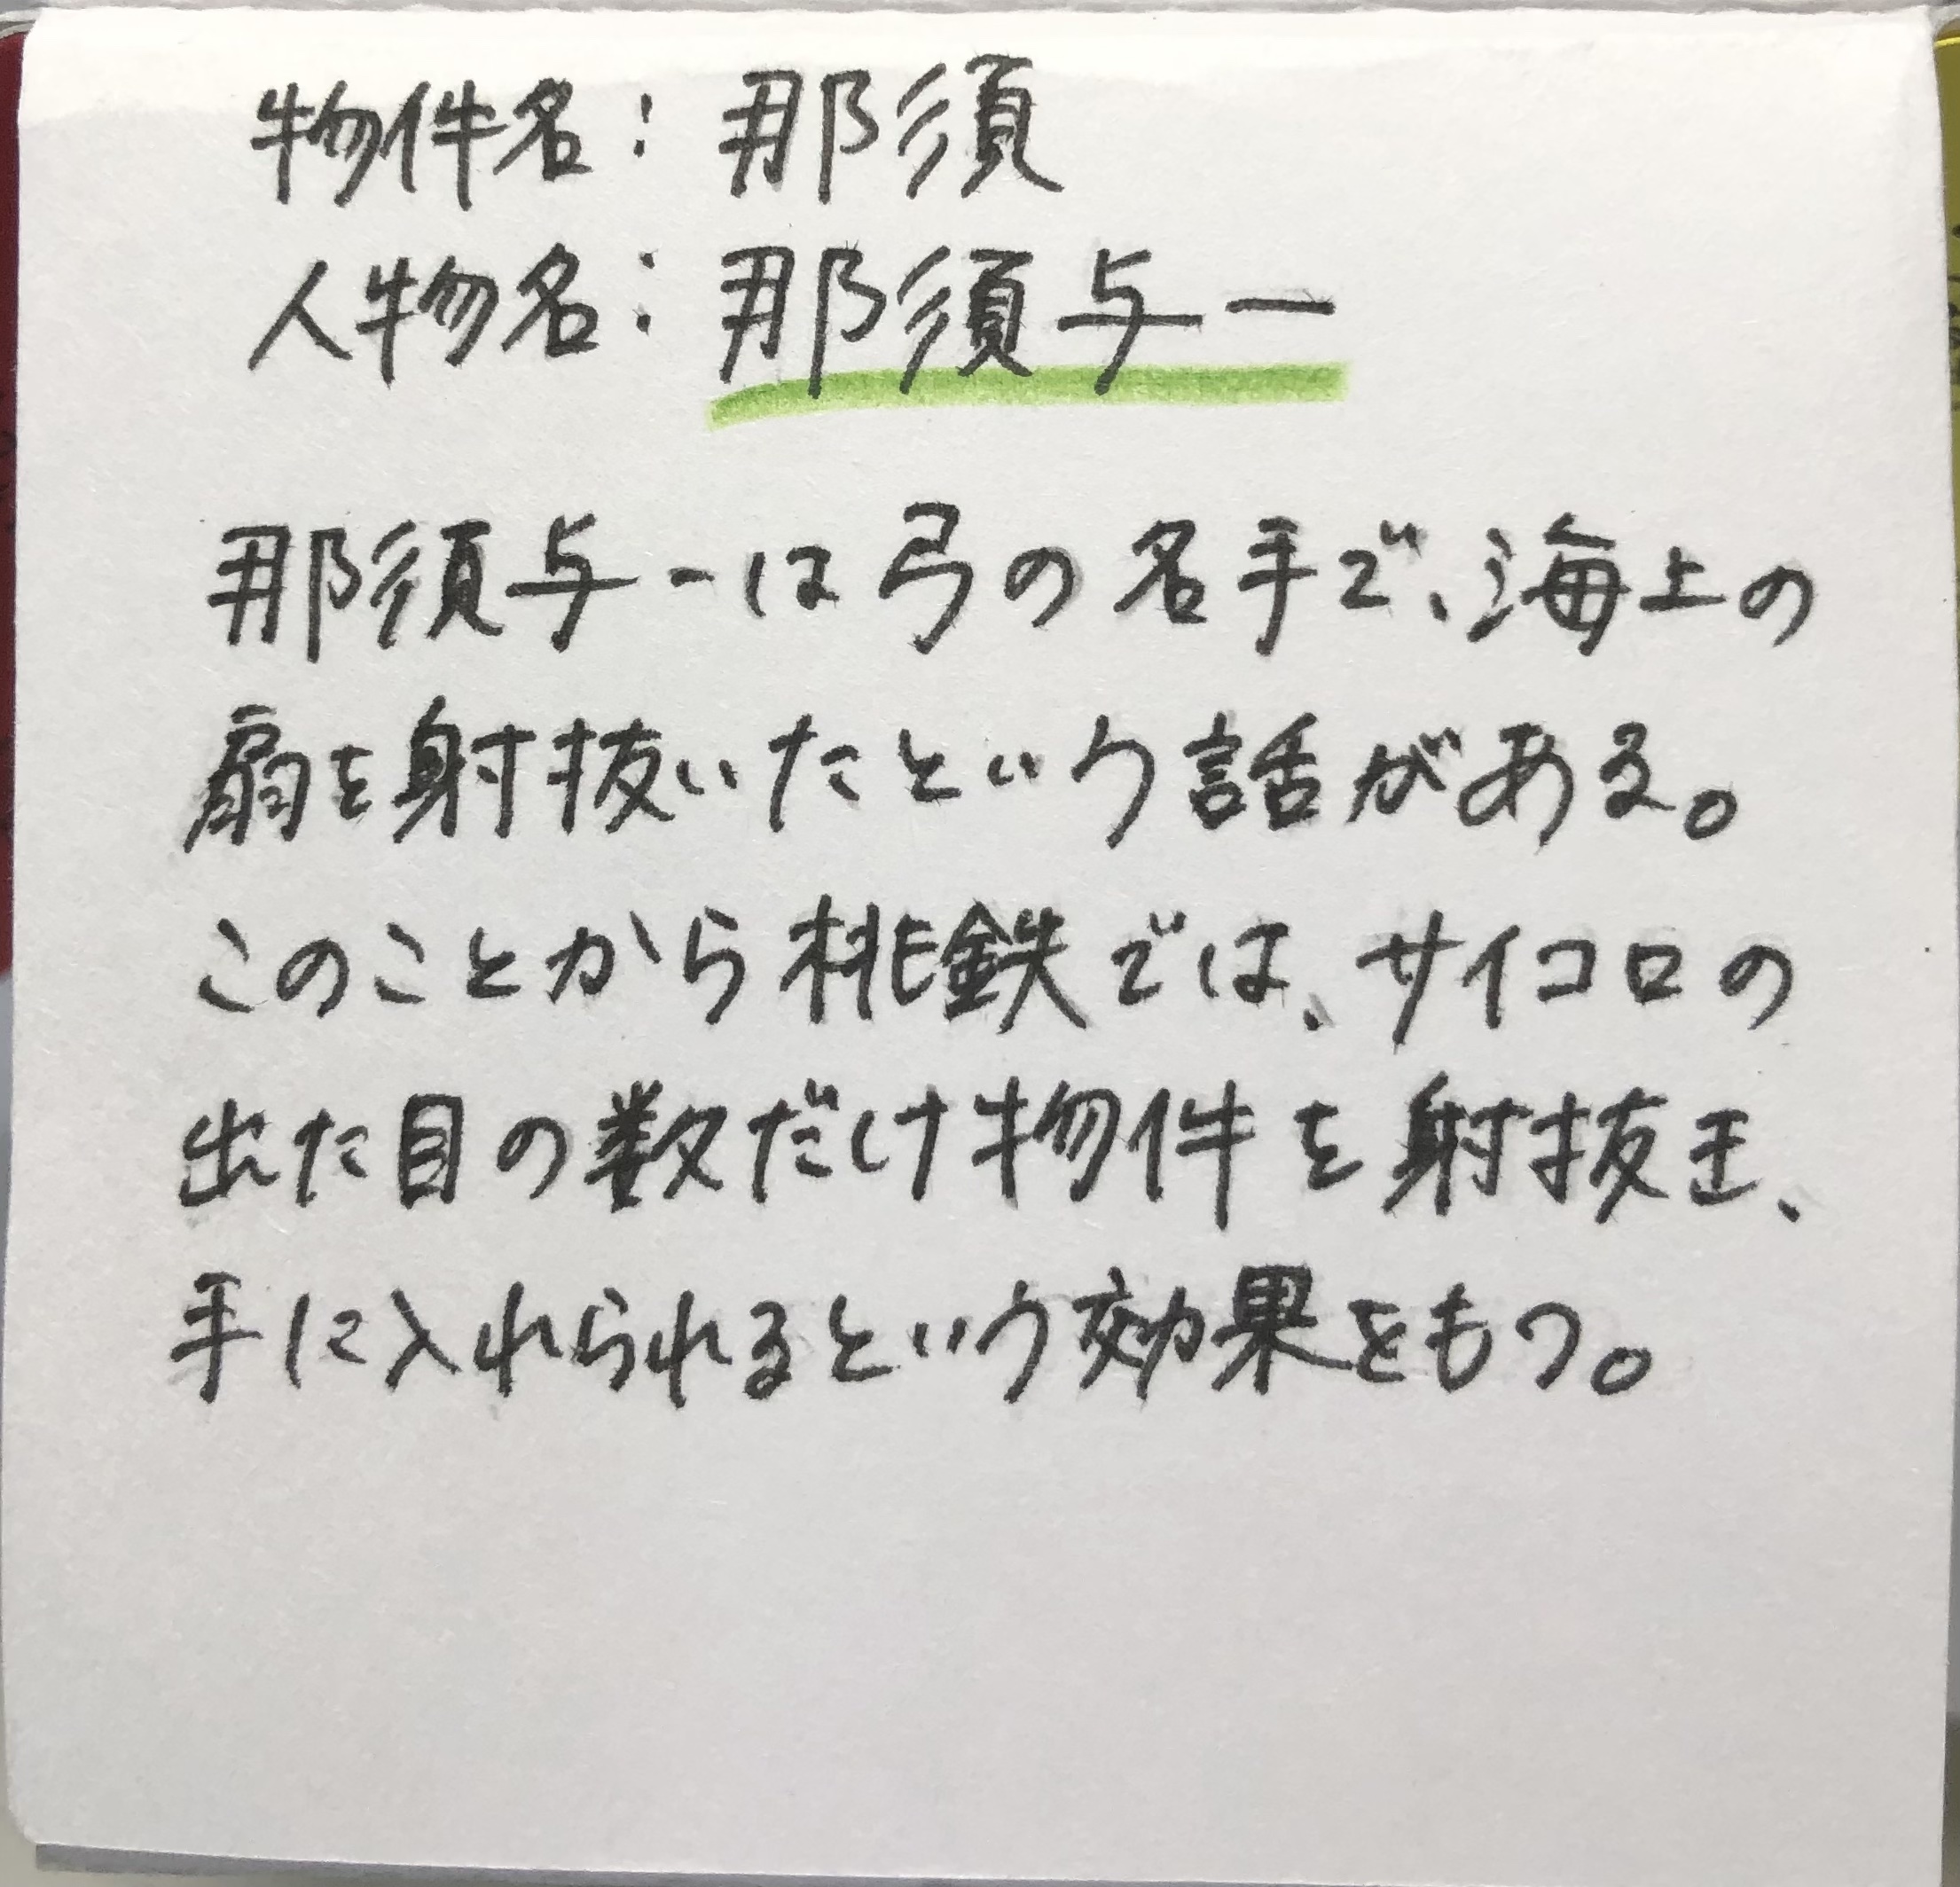 物件名：那須
人物名：那須与一
那須与一は弓の名手で、海上の
扇を射抜いたという話がある。
このことから桃鉄では、サイコロの
出た目の数だけ物件を射抜き、
手に入れられるという効果をもつ。